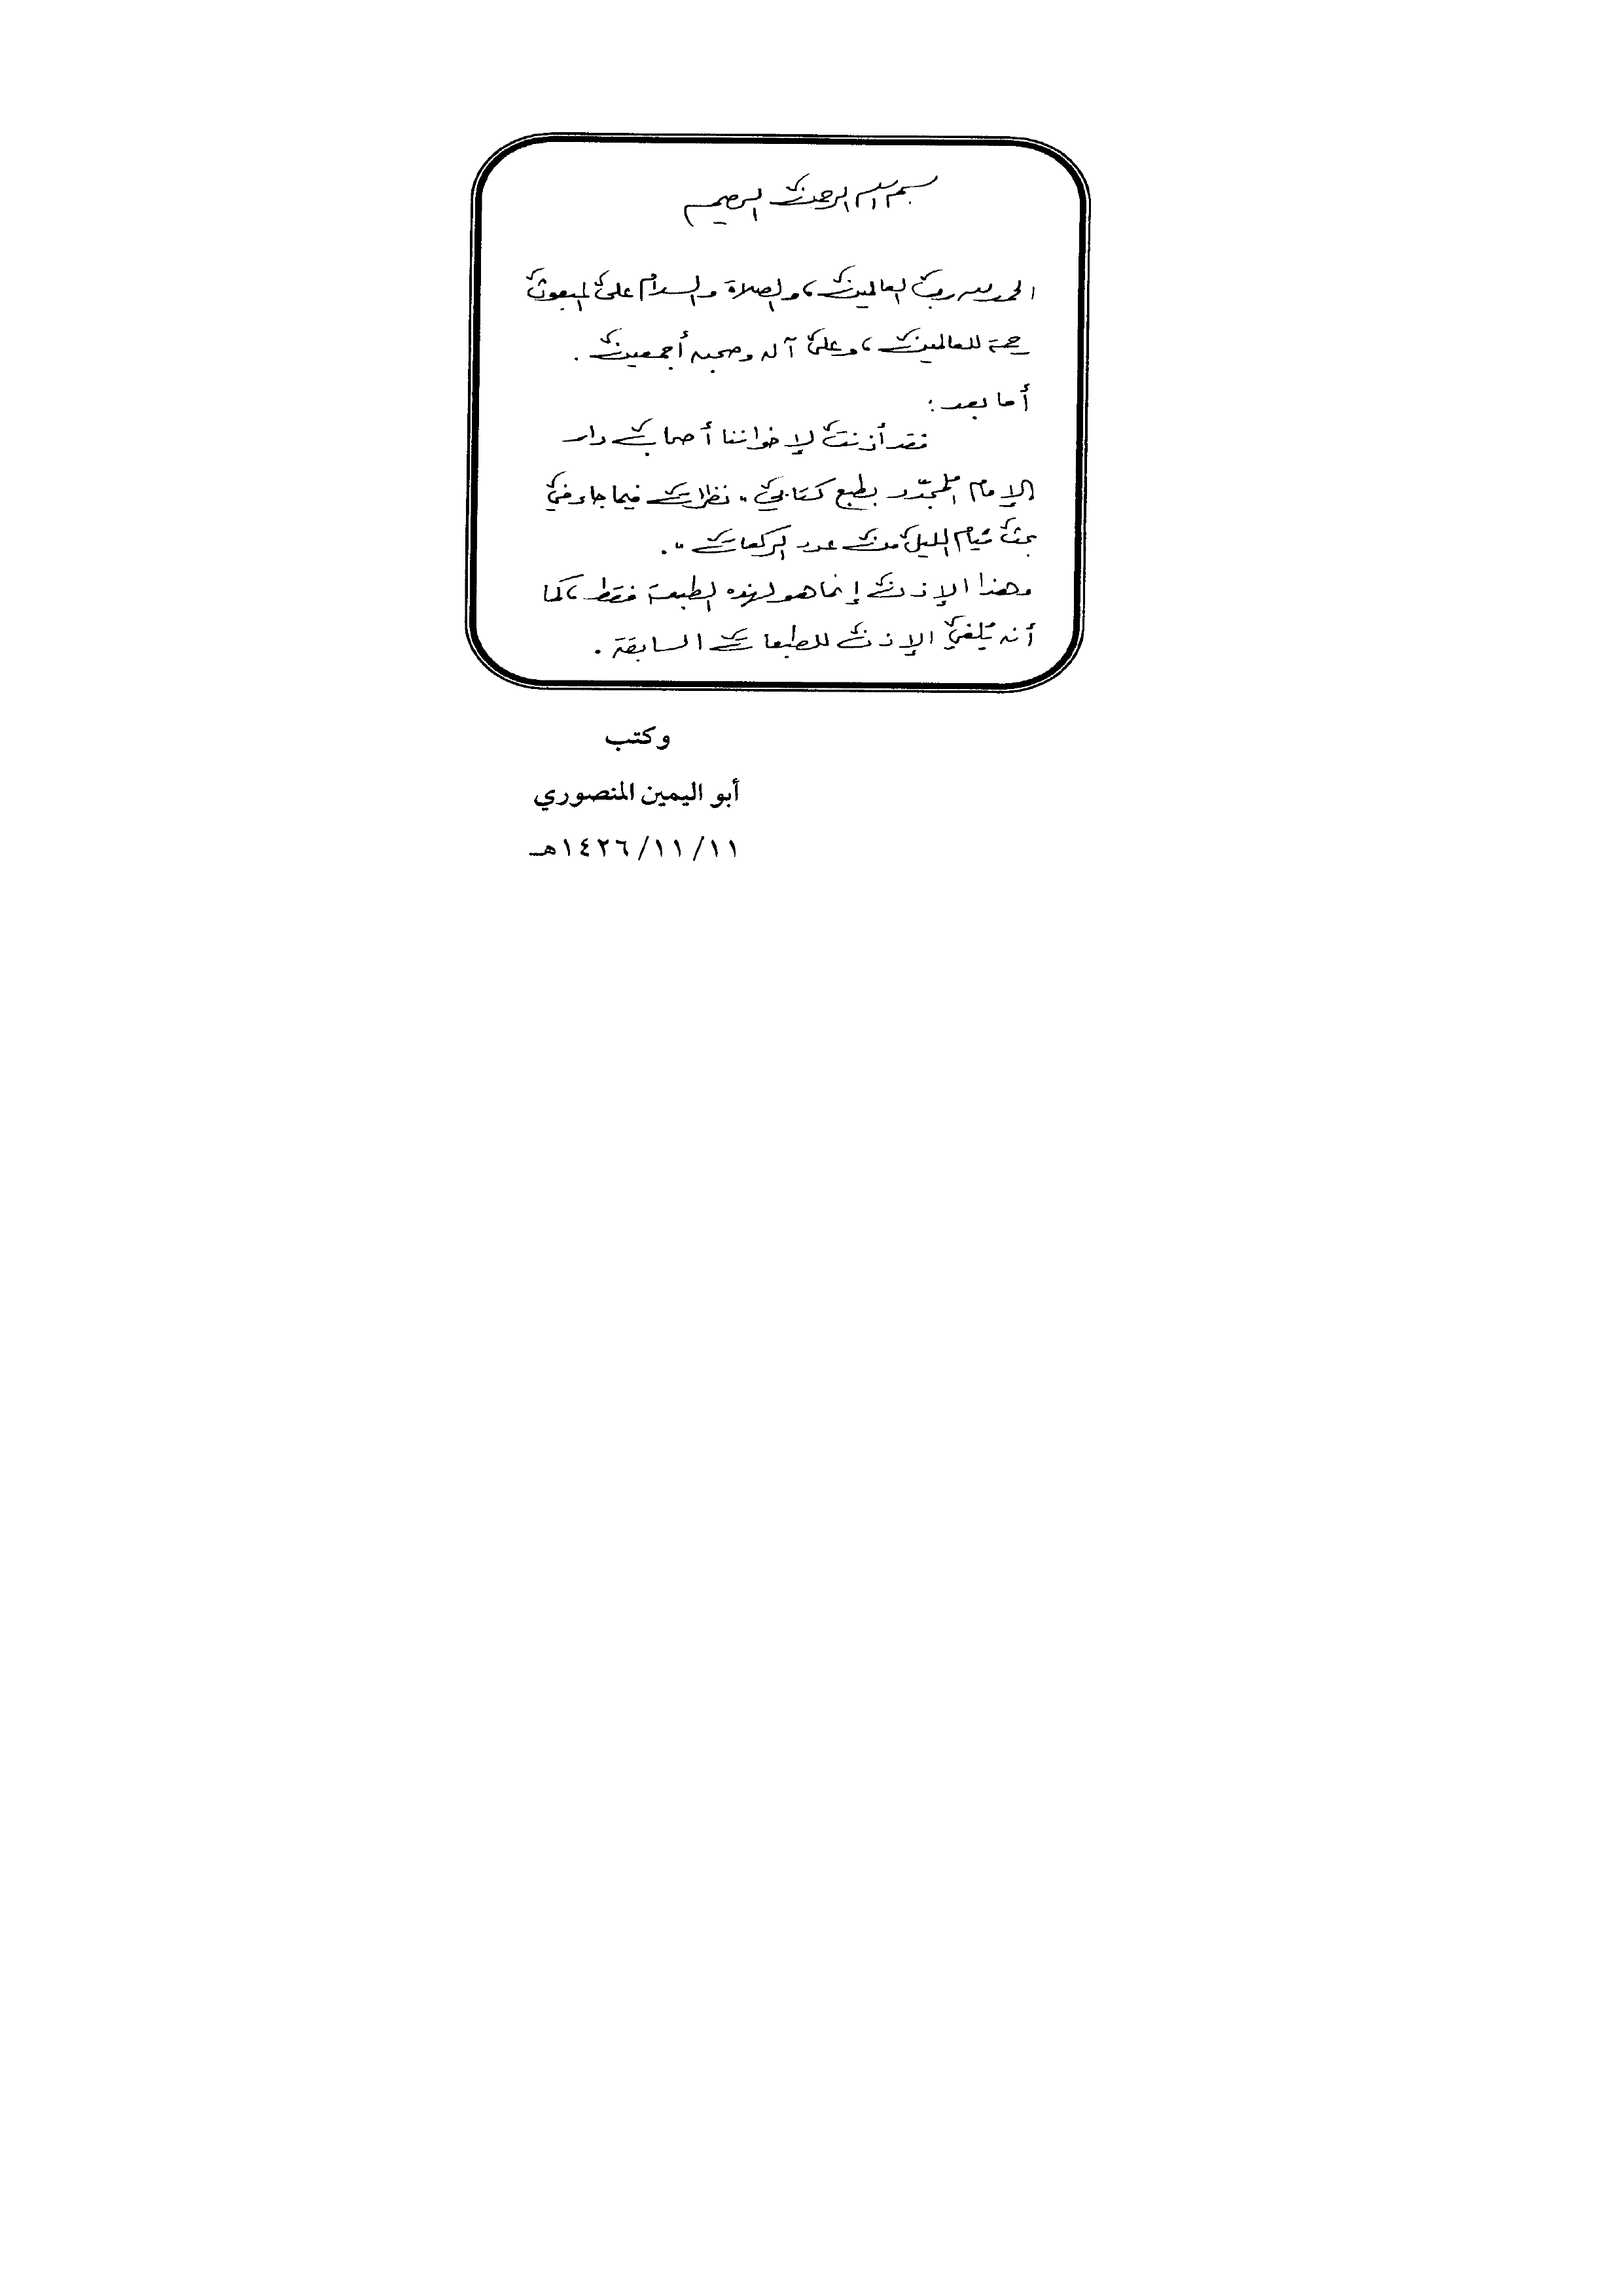 بسم الله الرحمن الرحيم
الحمد لله رب العالمين، والصلاة والسلام على المبعوث
رحمة للعالمين، وعلى آله وصحبه أجمعين.
أما بعد:
فقد أذنت لإخواننا أصحاب دار
الإمام المجدّد بطبع كتابي "نظرات فيما جاء في
بحث قيام الليل من عدد الركعات".
وهذا الإذن إنما هو لهذه الطبعة فقط، كما
أنه يُلغي الإذن للطبعات السابقة.
وكتب
أبو اليمين المنصوري
١١/١١/١٤٢٦هـ